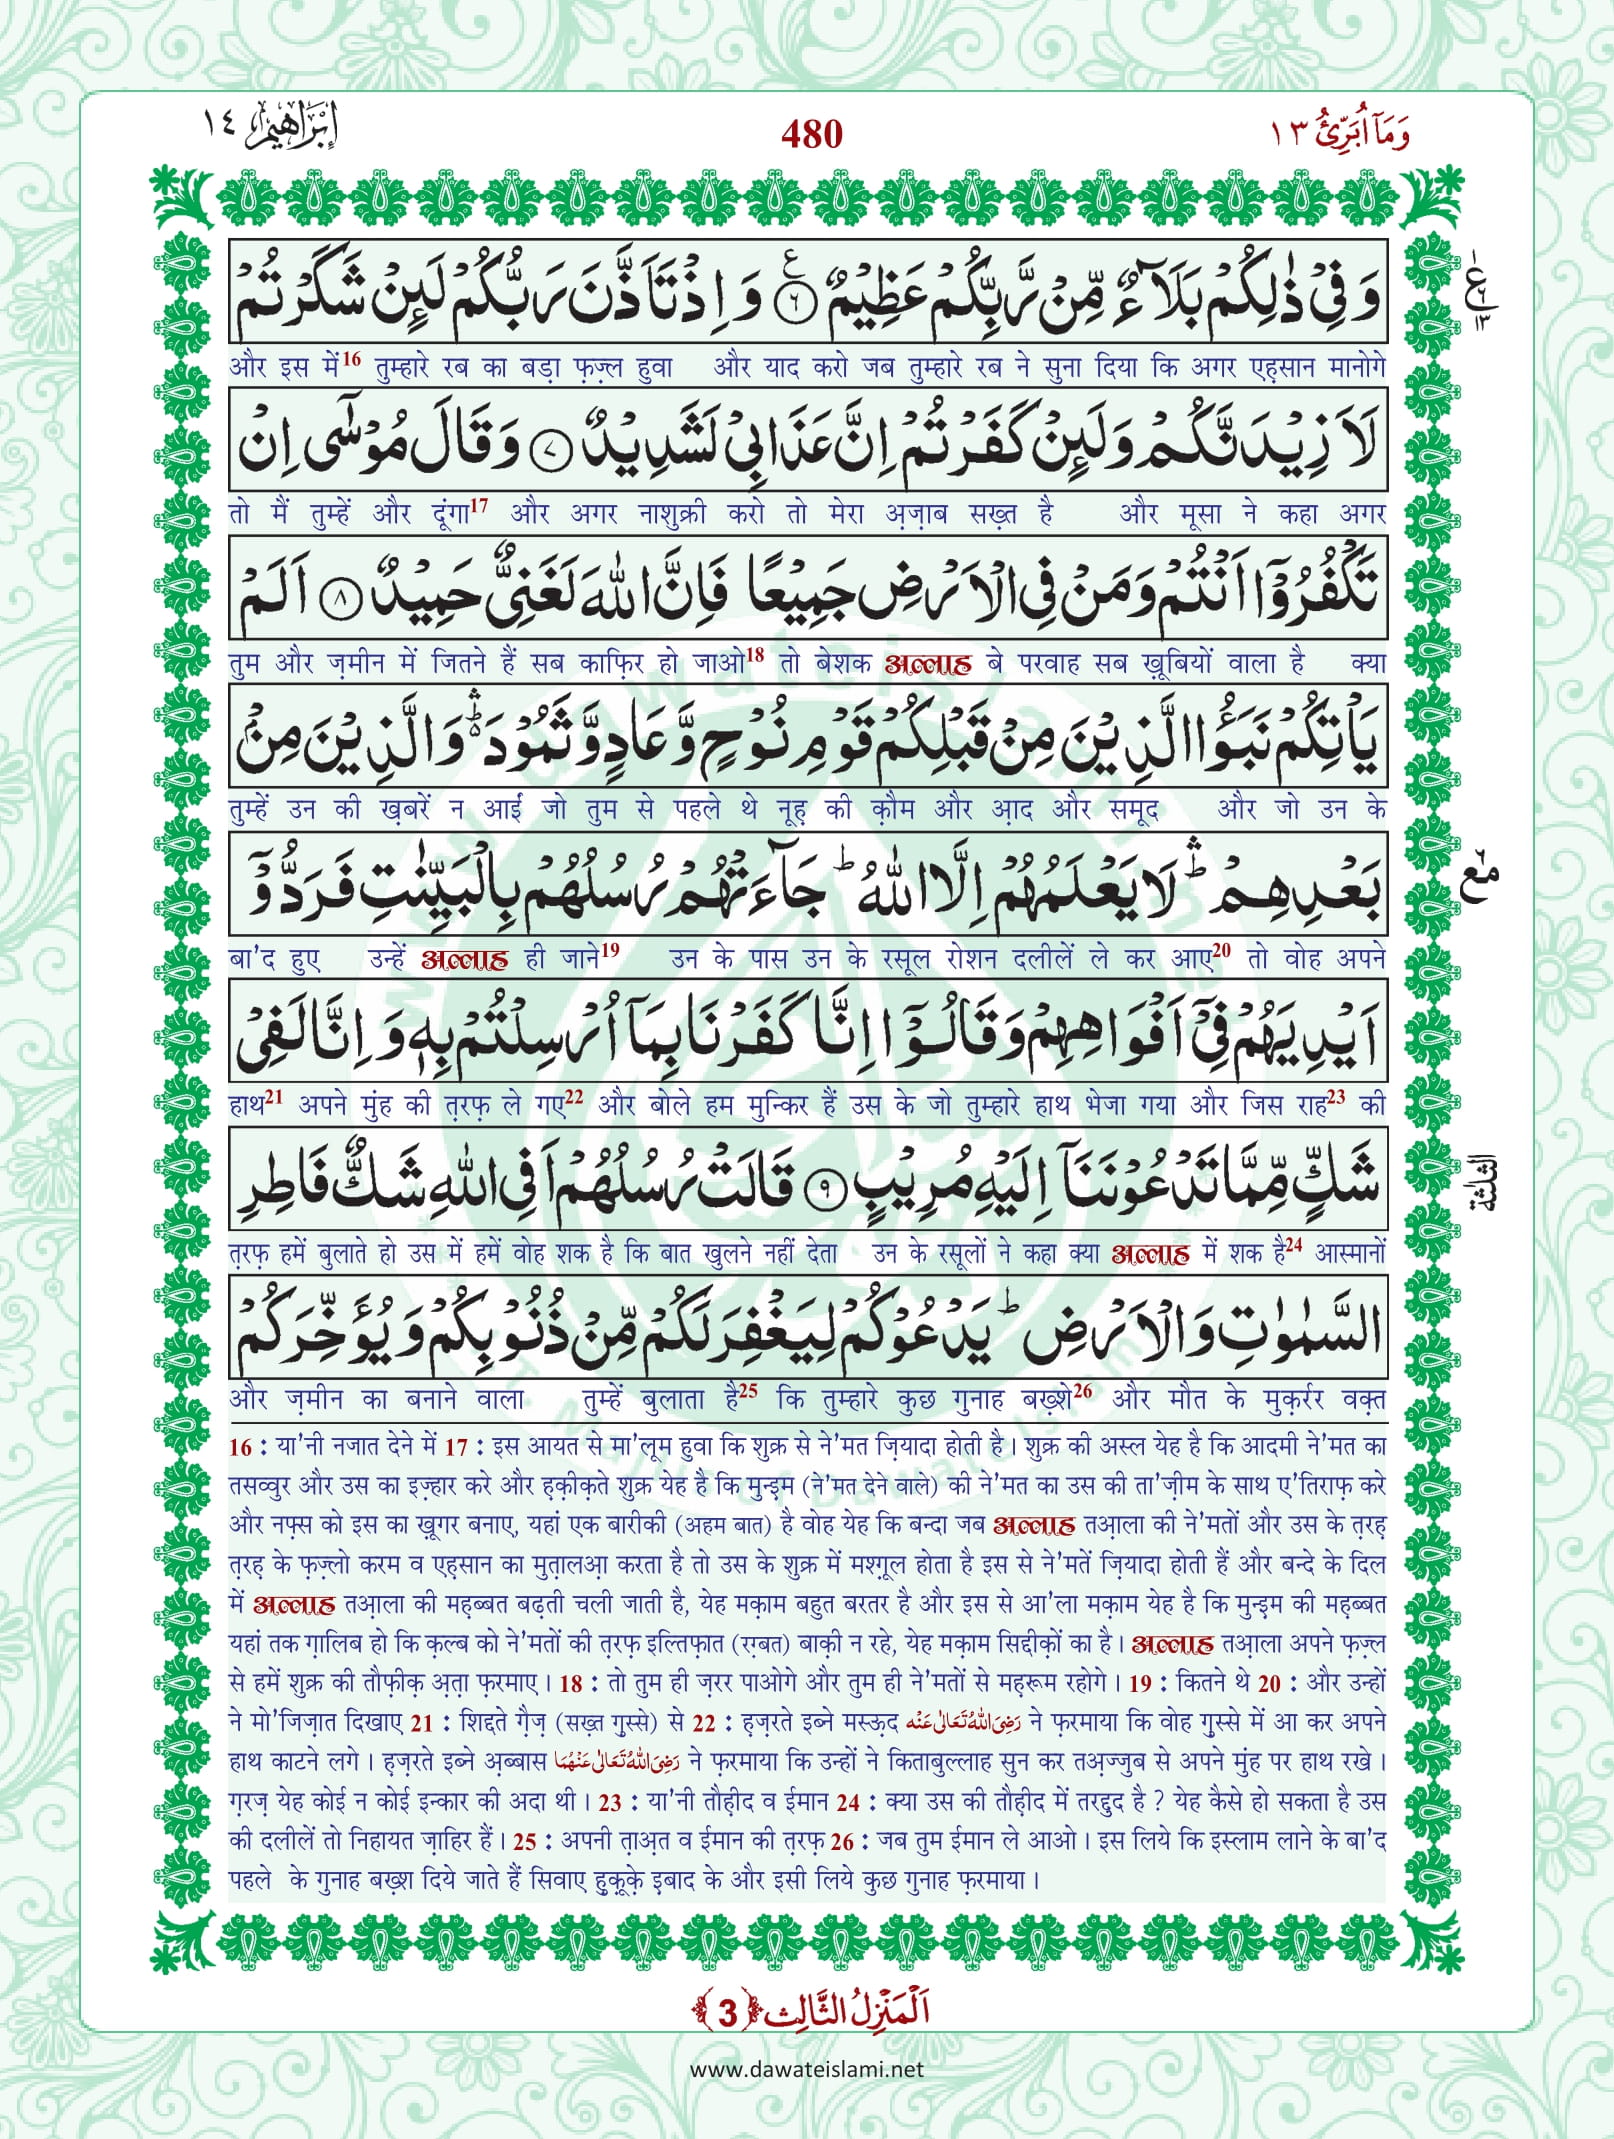 وَمَآ اُبَرِّئُ ١٣
480
اِبْرٰهِيْم ١٤
وَ فِیْ ذٰلِكُمْ بَلَآءٌ مِّنْ رَّبِّكُمْ عَظِیْمٌ ﴿٦﴾ وَ اِذْ تَاَذَّنَ رَبُّكُمْ لَىٕنْ شَكَرْتُمْ
और इस में16 तुम्हारे रब का बड़ा फ़ज़्ल हुवा और याद करो जब तुम्हारे रब ने सुना दिया कि अगर एह़सान मानोगे
لَاَزِیْدَنَّكُمْ وَ لَىٕنْ كَفَرْتُمْ اِنَّ عَذَابِیْ لَشَدِیْدٌ ﴿٧﴾ وَ قَالَ مُوْسٰۤى اِنْ
तो मैं तुम्हें और दूंगा17 और अगर नाशुक्री करो तो मेरा अ़ज़ाब सख़्त है और मूसा ने कहा अगर
تَكْفُرُوْۤا اَنْتُمْ وَ مَنْ فِی الْاَرْضِ جَمِیْعًا فَاِنَّ اللّٰهَ لَغَنِیٌّ حَمِیْدٌ ﴿٨﴾ اَلَمْ
तुम और ज़मीन में जितने हैं सब काफ़िर हो जाओ18 तो बेशक अल्लाह बे परवाह सब ख़ूबियों वाला है क्या
یَاْتِكُمْ نَبَؤُا الَّذِیْنَ مِنْ قَبْلِكُمْ قَوْمِ نُوْحٍ وَّ عَادٍ وَّ ثَمُوْدَ ۛؕ وَ الَّذِیْنَ مِنْۢ
तुम्हें उन की ख़बरें न आईं जो तुम से पहले थे नूह़ की क़ौम और आ़द और समूद और जो उन के
بَعْدِهِمْ ۛؕ لَا یَعْلَمُهُمْ اِلَّا اللّٰهُ ؕ جَآءَتْهُمْ رُسُلُهُمْ بِالْبَیِّنٰتِ فَرَدُّوْۤا
बा'द हुए उन्हें अल्लाह ही जाने19 उन के पास उन के रसूल रोशन दलीलें ले कर आए20 तो वोह अपने
اَیْدِیَهُمْ فِیْۤ اَفْوَاهِهِمْ وَ قَالُوْۤا اِنَّا كَفَرْنَا بِمَاۤ اُرْسِلْتُمْ بِهٖ وَ اِنَّا لَفِیْ
हाथ21 अपने मुंह की त़रफ़ ले गए22 और बोले हम मुन्किर हैं उस के जो तुम्हारे हाथ भेजा गया और जिस राह23 की
شَكٍّ مِّمَّا تَدْعُوْنَنَاۤ اِلَیْهِ مُرِیْبٍ ﴿٩﴾ قَالَتْ رُسُلُهُمْ اَفِی اللّٰهِ شَكٌّ فَاطِرِ
त़रफ़ हमें बुलाते हो उस में हमें वोह शक है कि बात खुलने नहीं देता उन के रसूलों ने कहा क्या अल्लाह में शक है24 आस्मानों
السَّمٰوٰتِ وَ الْاَرْضِ ؕ یَدْعُوْكُمْ لِیَغْفِرَ لَكُمْ مِّنْ ذُنُوْبِكُمْ وَ یُؤَخِّرَكُمْ
और ज़मीन का बनाने वाला तुम्हें बुलाता है25 कि तुम्हारे कुछ गुनाह बख़्शे26 और मौत के मुक़र्रर वक़्त
16 : या'नी नजात देने में 17 : इस आयत से मा'लूम हुवा कि शुक्र से ने'मत ज़ियादा होती है। शुक्र की अस्ल येह है कि आदमी ने'मत का
तसव्वुर और उस का इज़्हार करे और ह़क़ीक़ते शुक्र येह है कि मुन्इ़म (ने'मत देने वाले) की ने'मत का उस की ता'ज़ीम के साथ ए'तिराफ़ करे
और नफ़्स को इस का ख़ूगर बनाए, यहां एक बारीकी (अहम बात) है वोह येह कि बन्दा जब अल्लाह तआ़ला की ने'मतों और उस के त़रह़
त़रह़ के फ़ज़्लो करम व एह़सान का मुत़ालआ़ करता है तो उस के शुक्र में मश्ग़ूल होता है इस से ने'मतें ज़ियादा होती हैं और बन्दे के दिल
में अल्लाह तआ़ला की मह़ब्बत बढ़ती चली जाती है, येह मक़ाम बहुत बरतर है और इस से आ'ला मक़ाम येह है कि मुन्इ़म की मह़ब्बत
यहां तक ग़ालिब हो कि क़ल्ब को ने'मतों की त़रफ़ इल्तिफ़ात (रग़्बत) बाक़ी न रहे, येह मक़ाम सिद्दीक़ों का है। अल्लाह तआ़ला अपने फ़ज़्ल
से हमें शुक्र की तौफ़ीक़ अ़त़ा फ़रमाए। 18 : तो तुम ही ज़रर पाओगे और तुम ही ने'मतों से मह़रूम रहोगे। 19 : कितने थे 20 : और उन्हों
ने मो'जिज़ात दिखाए 21 : शिद्दते ग़ैज़ (सख़्त ग़ुस्से) से 22 : ह़ज़रते इब्ने मस्ऊ़द رَضِیَ اللّٰهُ تَعَالٰی عَنْه ने फ़रमाया कि वोह ग़ुस्से में आ कर अपने
हाथ काटने लगे। ह़ज़रते इब्ने अ़ब्बास رَضِیَ اللّٰهُ تَعَالٰی عَنْهُمَا ने फ़रमाया कि उन्हों ने किताबुल्लाह सुन कर तअ़ज्जुब से अपने मुंह पर हाथ रखे।
ग़रज़ येह कोई न कोई इन्कार की अदा थी। 23 : या'नी तौह़ीद व ईमान 24 : क्या उस की तौह़ीद में तरद्दुद है ? येह कैसे हो सकता है उस
की दलीलें तो निहायत ज़ाहिर हैं। 25 : अपनी त़ाअ़त व ईमान की त़रफ़ 26 : जब तुम ईमान ले आओ। इस लिये कि इस्लाम लाने के बा'द
पहले के गुनाह बख़्श दिये जाते हैं सिवाए हु़क़ूक़े इ़बाद के और इसी लिये कुछ गुनाह फ़रमाया।
ع ٦ ١٣
مع
الثلثة
اَلْمَنْزِلُ الثَّالِث ﴿3﴾
www.dawateislami.net